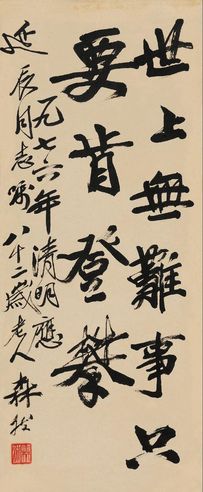 世上無難事只
要肯登攀
一九七六年清明應
延辰同志嘱八十二歲老人森然